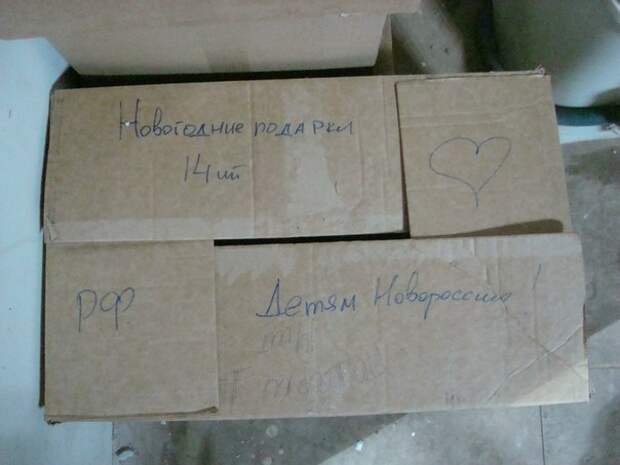 Новогодние подарки
14 шт
РФ
Детям Новороссии!